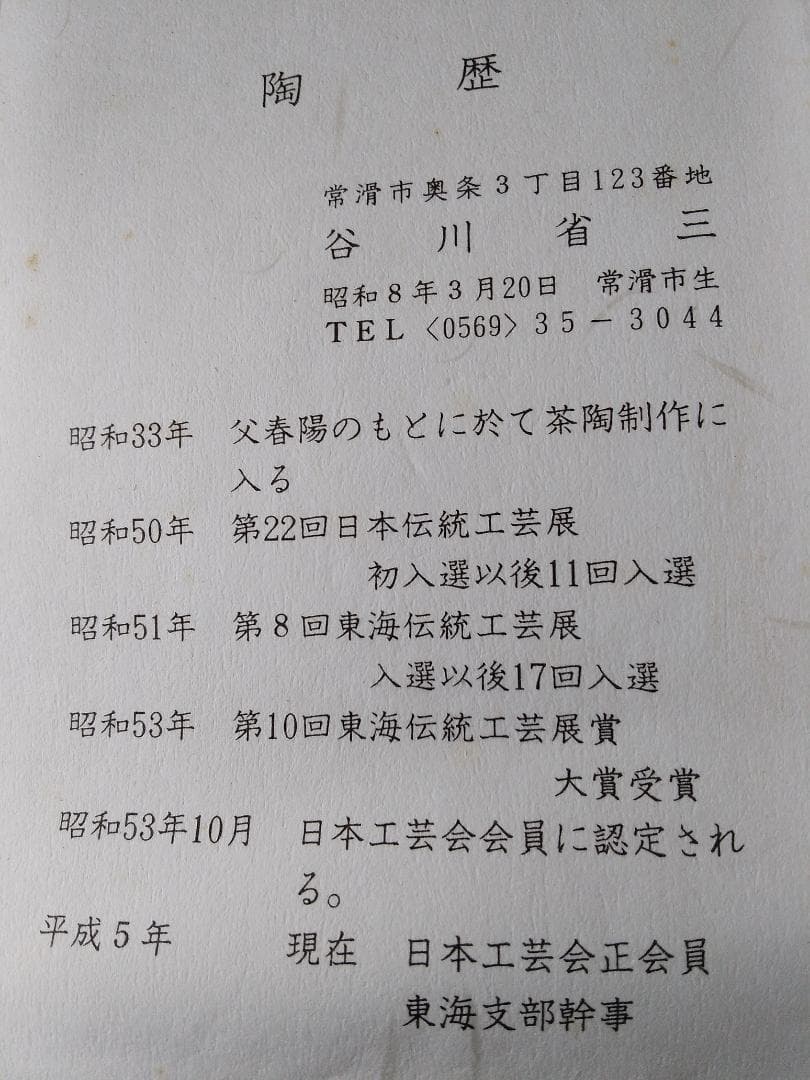 陶歴
常滑市奥条3丁目123番地
谷川省三
昭和8年3月20日　常滑市生
TEL〈0569〉35-3044
昭和33年　父春陽のもとに於て茶陶制作に
入る
昭和50年　第22回日本伝統工芸展
初入選以後11回入選
昭和51年　第8回東海伝統工芸展
入選以後17回入選
昭和53年　第10回東海伝統工芸展賞
大賞受賞
昭和53年10月　日本工芸会会員に認定され
る。
平成5年　現在　日本工芸会正会員
東海支部幹事